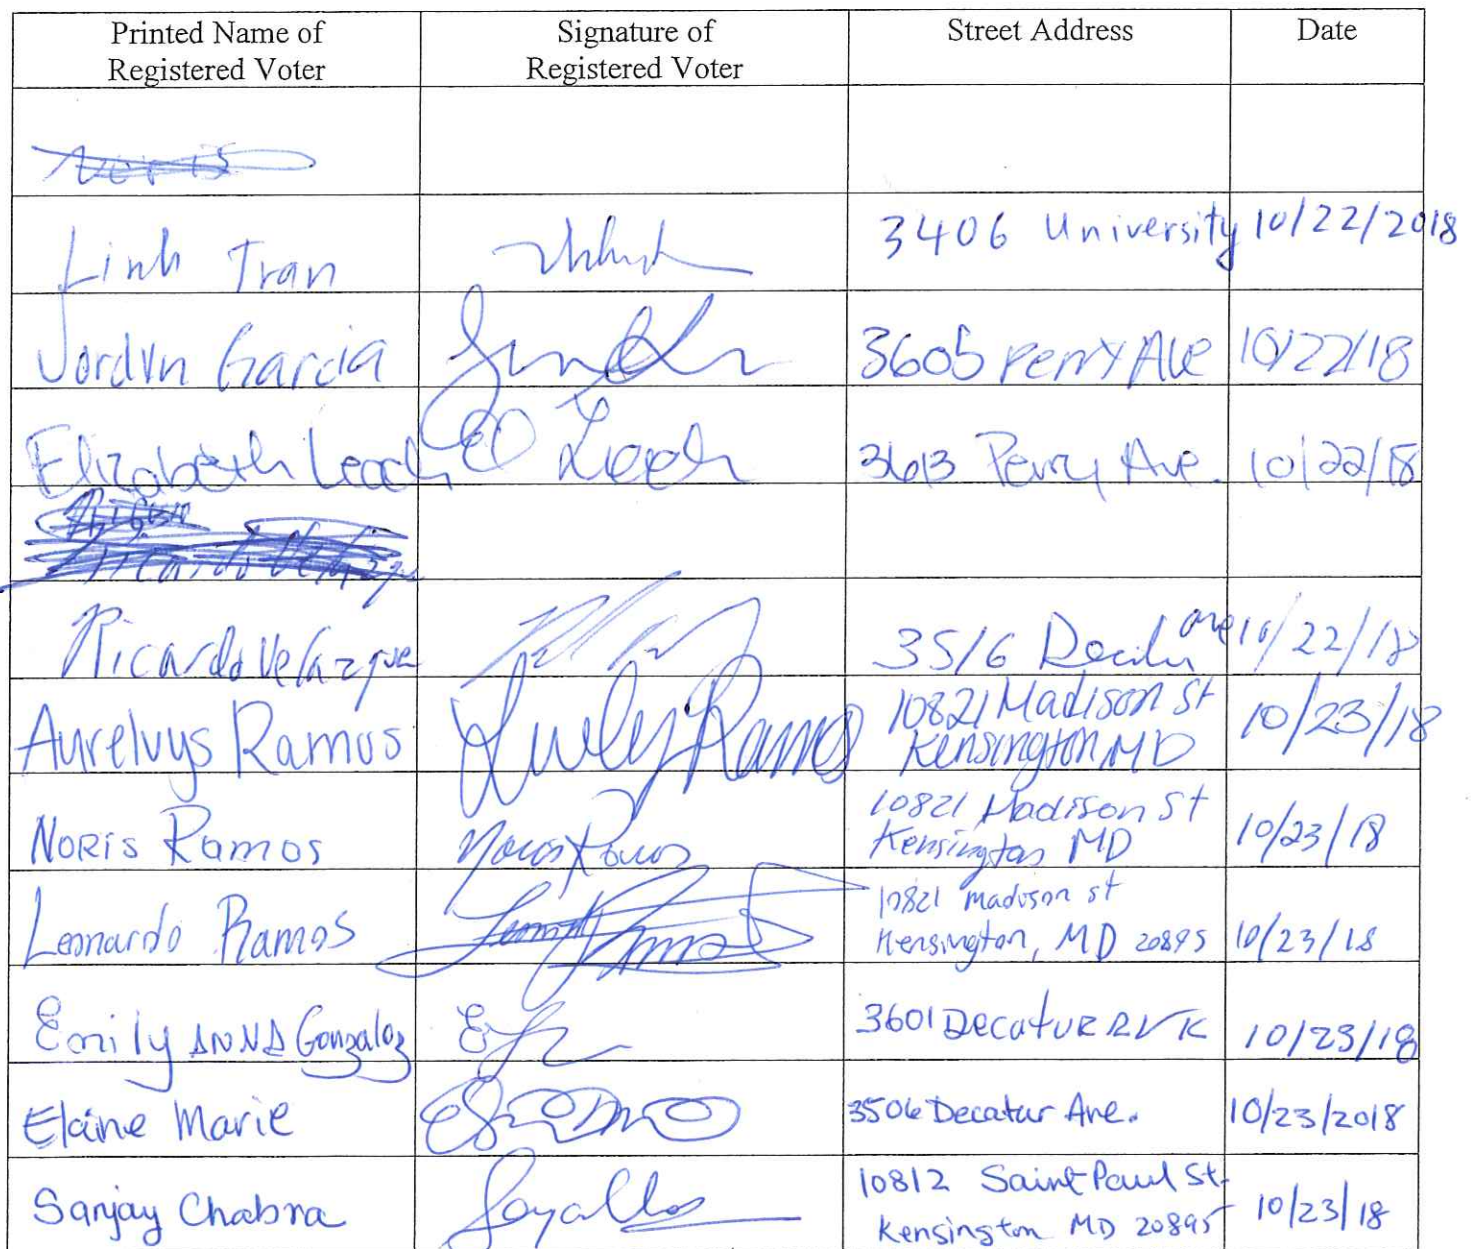 Printed Name of Registered Voter Signature of Registered Voter Street Address Date
Noris
Linh Tran 3406 University 10/22/2018
Jordyn Garcia 3605 Perry Ave 10/22/18
Elizabeth Leach E Leach 3613 Perry Ave. 10/22/18
Ricardo Velazque
Ricardo Velazque 3516 Ave 10/22/18
Aurelvys Ramos Ramos 10821 Madison St
Kensington MD 10/23/18
Noris Ramos Noris Ramos 10821 Madison St
Kensington MD 10/23/18
Leonardo Ramos 10821 Madison St
Kensington, MD 20895 10/23/18
Emily ANNA Gonzalez 3601 Decatur 10/23/18
Elaine Marie 3506 Decatur Ave. 10/23/2018
Sanjay Chabra 10812 Saint Paul St.
Kensington MD 20895 10/23/18